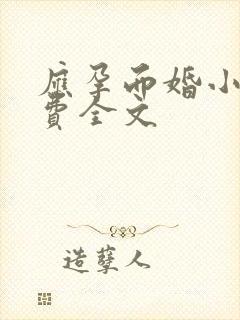 應孕而婚小
費全文
造孽人